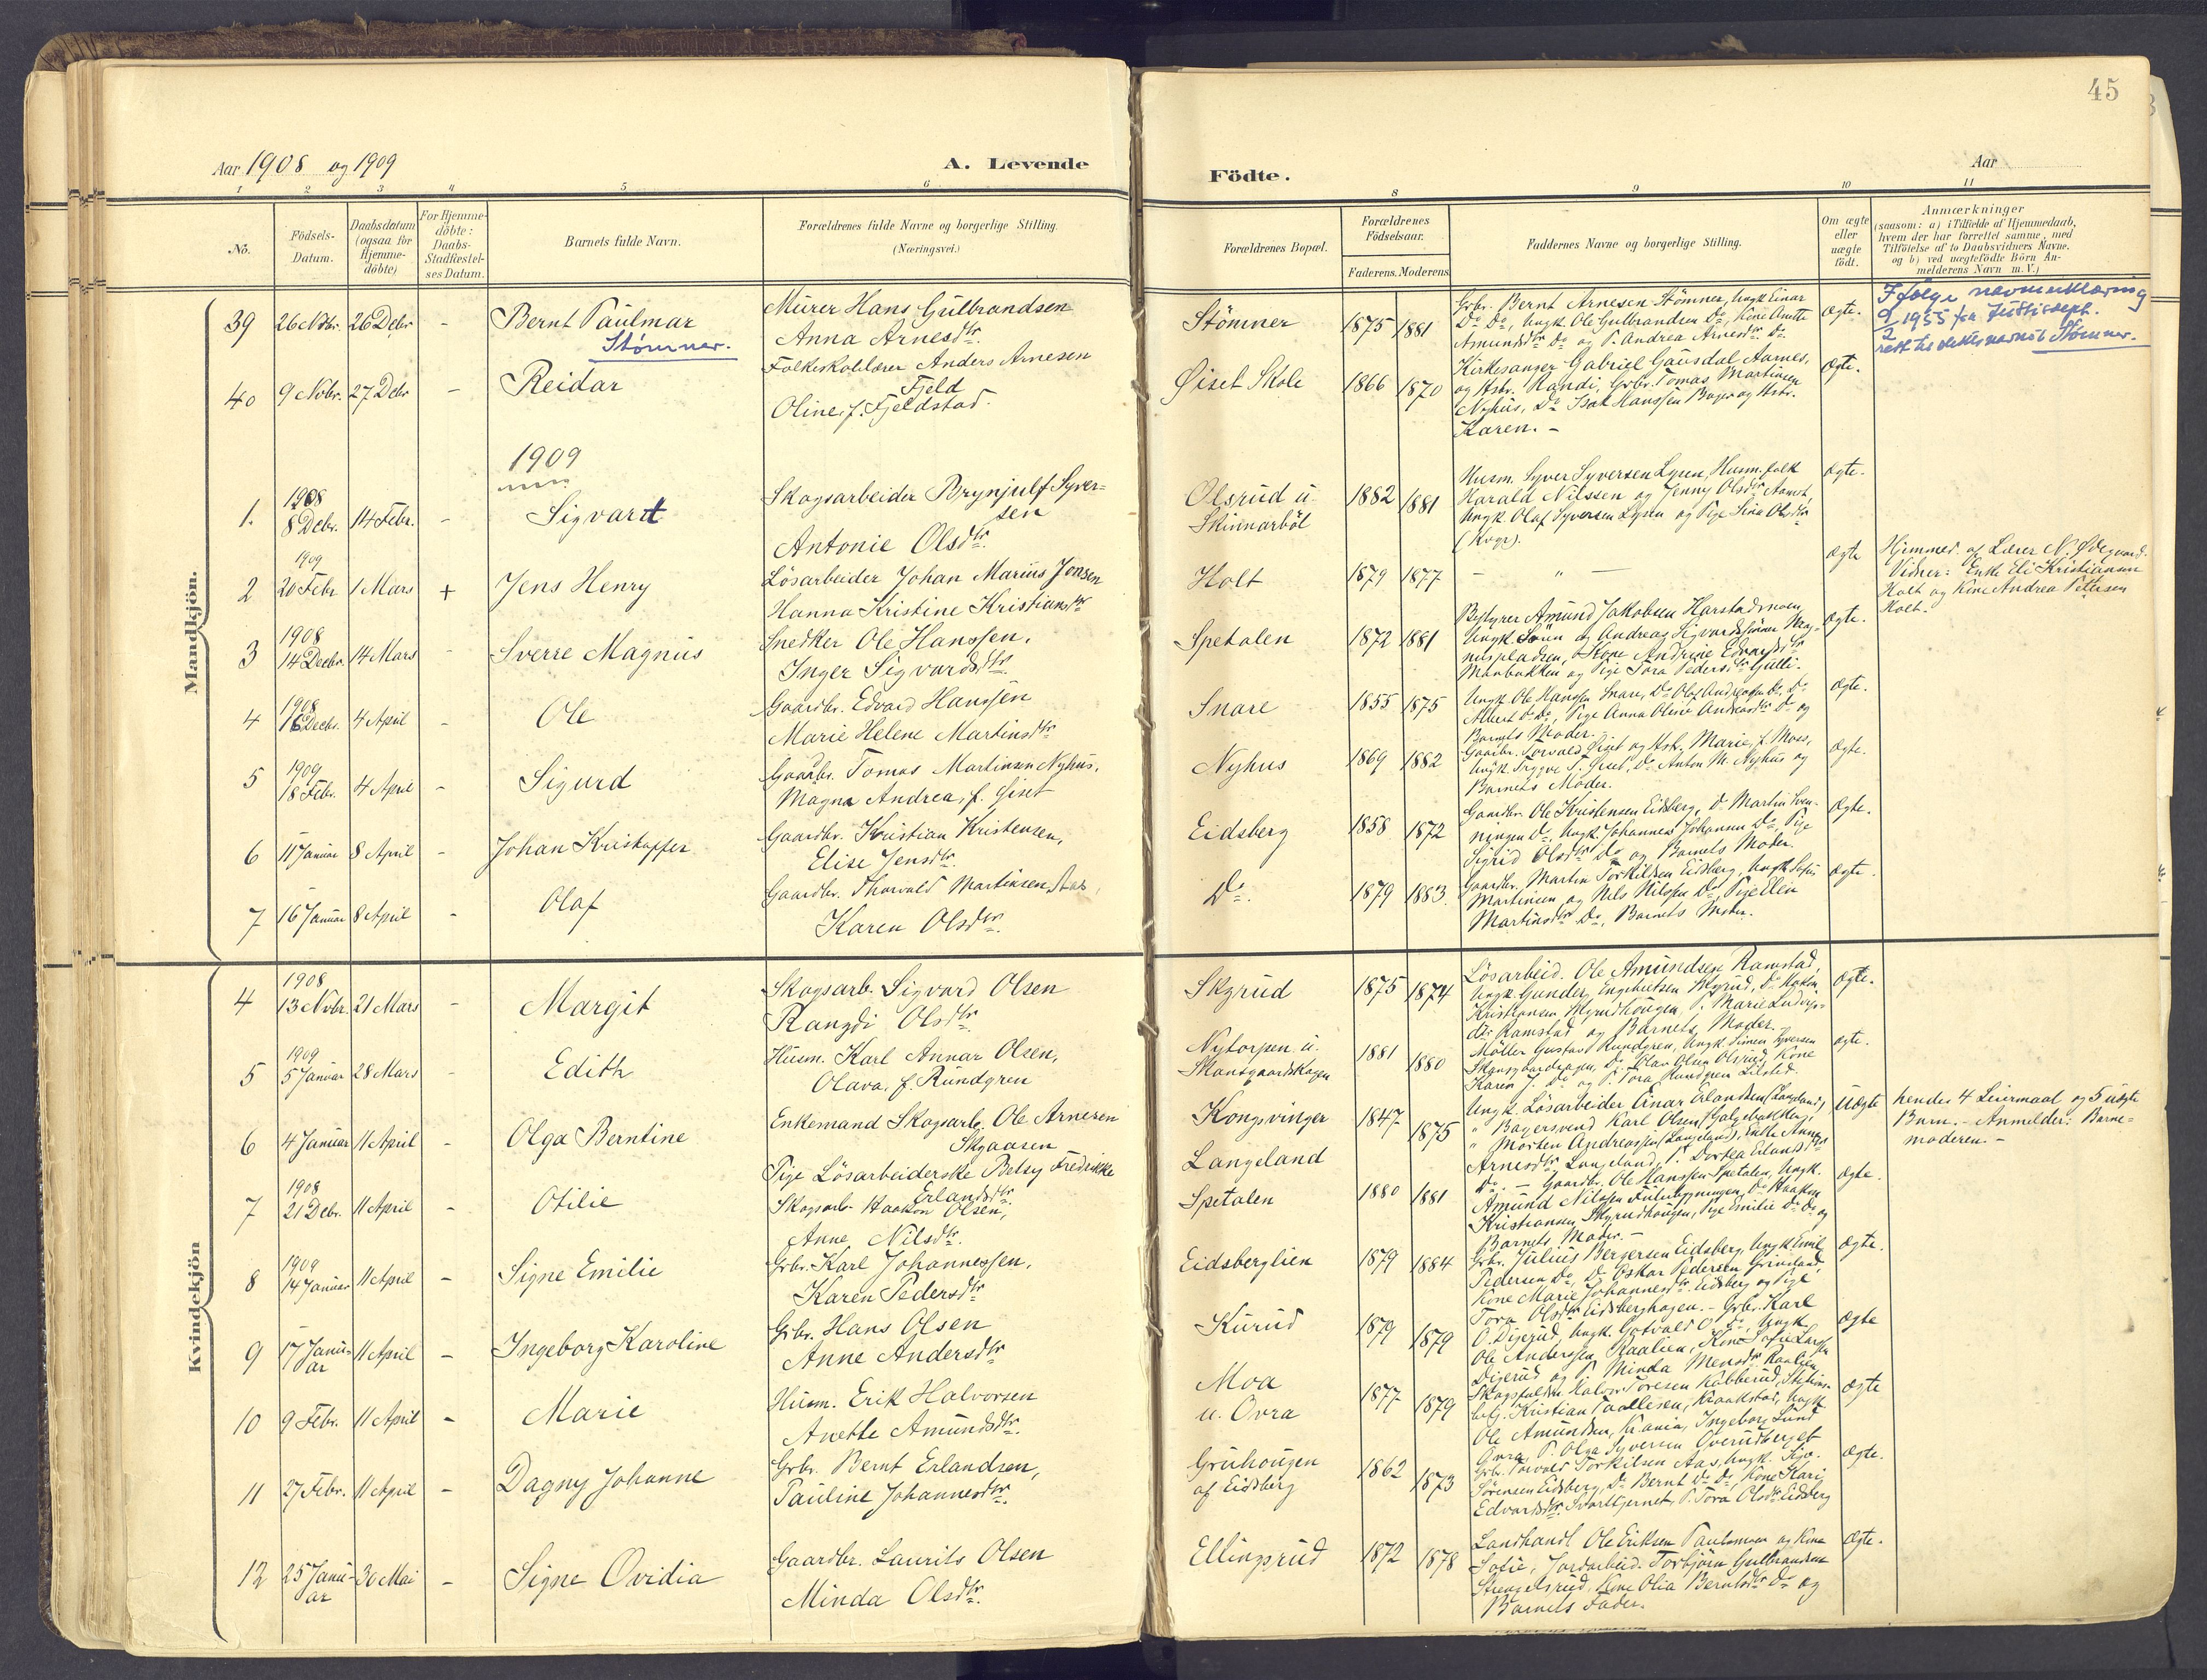 45
Aar 1908 og 1909
A. Levende
Födte.
Aar
1
2
3
4
5
6
8
9
10
11
No.
Födsels-
Datum.
Daabsdatum
(ogsaa for
Hjemme-
döbte)
For Hjemme-
döbte:
Daabs-
Stadfæstel-
ses Datum.
Barnets fulde Navn.
Forældrenes fulde Navne og borgerlige Stilling.
(Næringsvei.)
Forældrenes Bopæl.
Forældrenes
Födselsaar.
Faderens. Moderens
Faddernes Navne og borgerlige Stilling.
Om ægte
eller
uægte
födt.
Anmærkninger
(saasom: a) i Tilfælde af Hjemmedaab,
hvem der har forrettet samme, med
Tilföielse af to Daabsvidners Navne,
og b) ved uægtefödte Börn An-
melderens Navn m. V.)
Mandkjön.
39 26 Nvbr. 26 Debr - Bernt Paulmar
Stømner.
Murer Hans Gulbrandsen
Anna Arnesdtr.
Stömner 1875 1881
Grbr. Bernt Arnesen Stömner, Ungk. Einar
Do Do, Ungk. Ole Gulbrandsen Do, Kone Anette
Amundsdtr Do og P. Andrea Arnesdtr Do
Ægte.
Ifølge navneerklæring
9/2 1955 fra Justisdept.
rett til slektsnavnet Stømner.
40 9 Nvbr. 27 Debr - Reidar
Folkeskolelærer Anders Arnesen
Fjeld
Oline, f. Fjeldstad.
Øiset Skole 1866 1870
Kirkesanger Gabriel Gausdal Aarnes,
og Hstr. Randi, Grbr. Tomas Martinsen
Nyhus, Do Isak Hanssen Bager og Hstr.
Karen. -
Ægte.
1909
1. 1908
8 Debr. 14 Febr. - Sigvart
Skogsarbeider Brynjulf Syver-
sen
Antonie Olsdtr.
Olsrud u.
Skinnarböl 1882 1881
Husm. Syver Syversen Lysen, Husm. folk
Harald Nilssen og Jenny Olsdtr Aamot,
Ungk. Olaf Syversen Lysen og Pige Lina Olsdtr
(Kogr).
Ægte.
2 1909
20 Febr 1 Mars + Jens Henry
Lösarbeider Johan Marius Jonsen
Hanna Kristine Kristiansdtr
Holt 1879 1877 - " -
Ægte
Hjemmed. af Lærer N. Ødegaard.
Vidner: Enke Eli Kristiansen
Holt og Kone Andrea Petersen
Holt.
3 1908
14 Decbr. 14 Mars - Sverre Magnus
Snedker Ole Hanssen.
Inger Sigvardsdtr.
Spetalen 1872 1881
Bestyrer Amund Jakobsen Harstadmoen
Ungk. Søren og Andreas Sigvardssønner Mag-
nuspladsen, Kone Andrine Edvardsdtr
Manbakken og Pige Tora Pedersdtr Gulli.
Ægte.
4 1908
16 Decbr. 4 April - Ole
Gaardbr. Edvard Hanssen
Marie Helene Martinsdtr
Snare 1855 1875
Ungk. Ole Hanssen Snare, Do Olaf Andreassen Do, Do
Albert Do Do, Pige Anna Oline Andreasdtr Do og
Barnets Moder.
Ægte.
5 1909
18 Febr. 4 April - Sigurd
Gaardbr. Tomas Martinsen Nyhus,
Magna Andrea, f. Øiset
Nyhus 1869 1882
Gaardbr. Torvald Øiset og Hstr. Marie, f. Moes,
Ungk. Trygve T. Øiset, Do Anton M. Nyhus og
Barnets Moder.
Ægte.
6 11 Januar 8 April - Johan Kristoffer
Gaardbr. Kristian Kristensen,
Elise Jensdtr.
Eidsberg 1858 1872
Gaardbr. Ole Kristensen Eidsberg, Do Martin Sven-
ningsen Do, Ungk. Johannes Johansen Do, Pige
Sigrid Olsdtr Do og Barnets Moder.
Ægte.
7 16 Januar 8 April - Olaf
Gaardbr. Thorvald Martinsen Aas,
Karen Olsdtr.
Do. 1879 1883.
Gaardbr. Martin Torkildsen Eidsberg, Ungk. Sofus
Martinsen og Nels Nilssen Do, Pige Elen
Martinsdtr Do, Barnets Moder.
Ægte.
Kvindekjön
4 1908
13 Nvbr. 21 Mars - Margit
Skogsarb. Sigvard Olsen
Rangdi Olsdtr.
Skyrud 1875 1874
Lösarbeid. Ole Amundsen Ramstad,
Ungk. Gunder Engebretsen Skyrud, Do Hakon
Kristiansen Skyrudhougen, P. Marie Ludvigs-
dtr Ramstad og Barnets Moder.
Ægte.
5 1909
5 Januar 28 Mars - Edith
Husm. Karl Annar Olsen,
Olava, f. Rundgren
Nytorpen u.
Skansgaardskogen 1881 1880
Möller Gustav Rundgren, Ungk. Simen Syversen
Skansgaardskogen, Do Olav Olsen Olsrud, Kone
Karen J. Do og P. Tora Rundgren Lilsted.
Ægte.
6 4 Januar 11 April - Olga Berntine
Enkemand Skogsarb. Ole Arnesen
Skjaasen
Pige Lösarbeiderske Betsy Fredrikke
Erlandsdtr
Kongsvinger 1847
Langeland 1875
Ungk. Lösarbeider Einar Erlandsen (Langeland),
" Bagersvend Karl Olsen (Galgebakken),
" Morten Andreassen (Langeland), Enke Anne
Arnesdtr Langeland, P. Dortea Erlandsdtr
Do. -
Uægte
hendes 4 Leiermaal og 5 uægte
Barn. - Anmelder: Barne-
moderen. -
7 1908
21 Debr. 11 April - Otilie
Skogsarb. Haakon Olsen,
Anne Nilsdtr.
Spetalen 1880 1881
Gaardbr. Ole Hanssen Spetalen, Ungk.
Amund Nilssen Fulubygningen, Do Haakon
Kristiansen Skyrudhougen, Pige Emilie Do Do og
Barnets Moder. -
Ægte.
8 1909
14 Januar 11 April - Signe Emilie
Grbr. Karl Johannessen,
Karen Pedersdtr
Eidsberglien 1879 1884
Grbr. Julius Bergersen Eidsberg, Ungk. Emil
Pedersen Do, Do Oskar Pedersen Grinland,
Kone Marie Johannesdtr Eidsberg og Pige
Tora Olsdtr Eidsberghagen. -
Ægte.
9 17 Janu-
ar 11 April - Ingeborg Karoline
Grbr. Hans Olsen
Anne Andersdtr
Kurud 1879 1879
Grbr. Karl
O. Digerud, Ungk. Gotvald O. Do, Ungk.
Ole Anderssen Raalien, Kone Sofie Larssen
Digerud og P. Minda Mensdtr Raalien
Ægte
10 9 Febr. 11 April - Marie
Husm. Erik Halvorsen
Anette Amundsdtr.
Moa
u. Ovra 1877 1879
Skogsfuldm. Halvor Toresen Kabberud, Stations-
betj. Kristian Paallesen, Kraakstad, Ungk.
Ole Amundsen, Kr.ania, Ingeborg Lund
Ovra, P. Olga Syversen Overudberget
Ægte
11 27 Febr. 11 April - Dagny Johanne
Grbr. Bernt Erlandsen,
Pauline Johannesdtr.
Gruhougen
af Eidsberg 1862 1873
Grbr. Torvald Torkilsen Aas, Ungk.
Sörensen Eidsberg, Do Bernt Do Do, Kone Kari
Edvardsdtr Svarttjernet, P. Tora Olsdtr Eidsberg
Ægte.
12 25 Janu-
ar 30 Mai - Signe Ovidia
Gaardbr. Laurits Olsen
Minda Olsdtr.
Ellingsrud 1872 1878
Landhandl. Ole Eriksen Paulsmoen og Kone
Sofie, Jordarbeid. Torbjörn Gulbrandsen
Strengelsrud, Kone Olia Berntsdtr Do og
Barnets Fader.
Ægte.